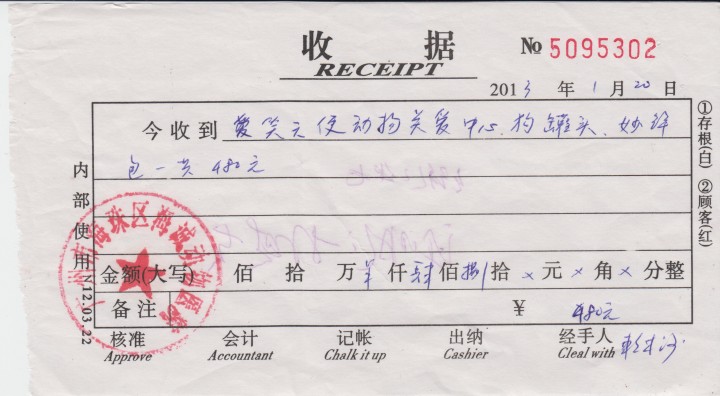 收据
RECEIPT
№ 5095302
2013 年 1 月 20 日
今收到 爱笑天使动物关爱中心, 狗罐头、妙鲜
包一共 480元
金额(大写) 佰 拾 万 仟 肆 佰 捌 拾 × 元 × 角 × 分整
备注 ¥ 480元
核准 会计 记帐 出纳 经手人
Approve Accountant Chalk it up Cashier Cleal with
内部使用
N12.03.22
①存根(白) ②顾客(红)
海珠区